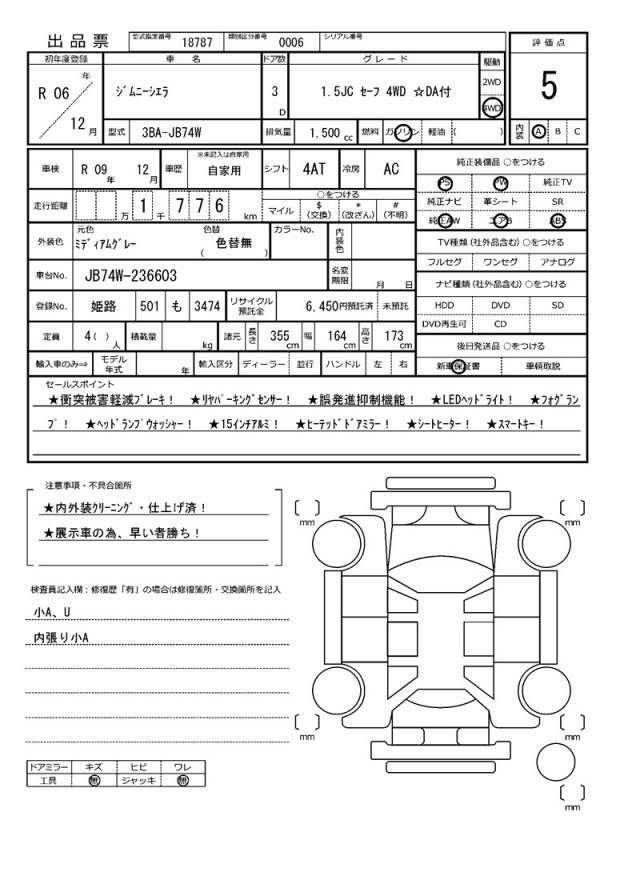 出品票 型式指定番号 18787 類別区分番号 0006 シリアル番号
評価点
5
内装 A B C
初年度登録 車名 ドア数 グレード 駆動
R 06 年 12 月
ｼﾞﾑﾆｰｼｴﾗ 3 D 1.5JC ｾｰﾌ 4WD ☆DA付 2WD 4WD
型式 3BA-JB74W 排気量 1,500 cc 燃料 ガソリン 軽油 ( )
車検 R 09 年 12 月 車歴 ※未記入は自家用 自家用 シフト 4AT 冷房 AC
走行距離 万 1 千 7 7 6 km
○をつける
マイル $ (交換) * (改ざん) # (不明)
外装色 元色 ﾐﾃﾞｨｱﾑｸﾞﾚｰ 色替 ( 色替無 ) カラーNo. 内装色
車台No. JB74W-236603 名変期限 月 日
登録No. 姫路 501 も 3474 リサイクル預託金 6,450円預託済 未預託
定員 4 ( ) 人 積載量 kg 諸元 長さ 355 cm 幅 164 cm 高さ 173 cm
輸入車のみ⇒ モデル年式 年 輸入区分 ディーラー 並行 ハンドル 左 右
純正装備品 ○をつける
PS PW 純正TV
純正ナビ 革シート SR
純正AW エアB ABS
TV種類 (社外品含む) ○をつける
フルセグ ワンセグ アナログ
ナビ種類 (社外品含む) ○をつける
HDD DVD SD
DVD再生可 CD
後日発送品 ○をつける
新車保証書 車輌取説
セールスポイント
★衝突被害軽減ﾌﾞﾚｰｷ！ ★ﾘﾔﾊﾟｰｷﾝｸﾞｾﾝｻｰ！ ★誤発進抑制機能！ ★LEDﾍｯﾄﾞﾗｲﾄ！ ★ﾌｫｸﾞﾗﾝ
ﾌﾟ！ ★ﾍｯﾄﾞﾗﾝﾌﾟｳｫｯｼｬｰ！ ★15ｲﾝﾁｱﾙﾐ！ ★ﾋｰﾃｯﾄﾞﾄﾞｱﾐﾗｰ！ ★ｼｰﾄﾋｰﾀｰ！ ★ｽﾏｰﾄｷｰ！
注意事項・不具合箇所
★内外装ｸﾘｰﾆﾝｸﾞ・仕上げ済！
★展示車の為、早い者勝ち！
検査員記入欄：修復歴「有」の場合は修復箇所・交換箇所を記入
小A、U
内張り小A
ドアミラー キズ ヒビ ワレ
工具 無 ジャッキ 無
mm
mm
mm
mm
mm